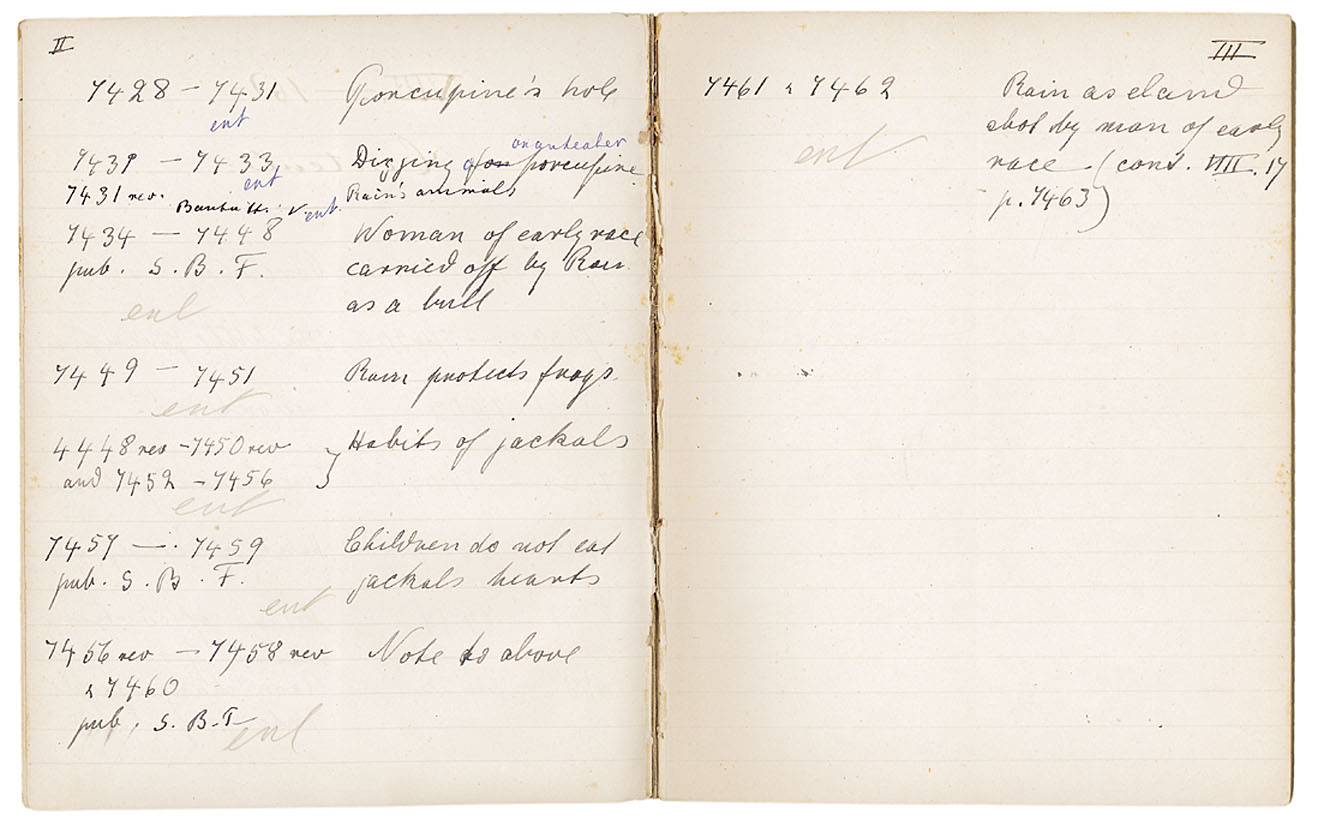 II
7428 – 7431 Porcupine's hole
ent
on anteater
7431 – 7433 Digging of on porcupine
ent
7431 rev. Rain's animals
Bantu H. V. ent.
7434 – 7448 Woman of early race
pub. S. B. F. carried off by Rain
as a bull
ent
7449 – 7451 Rain protects frogs.
ent
4448 rev – 7450 rev } Habits of jackals
and 7452 – 7456
ent
7457 – 7459 Children do not eat
pub. S. B. F. jackals hearts
ent
7456 rev – 7458 rev Note to above
& 7460
pub. S. B. F
ent
III
7461 & 7462 Rain as eland
shot by man of early
ent
race (cont. VIII. 17
p. 7463)